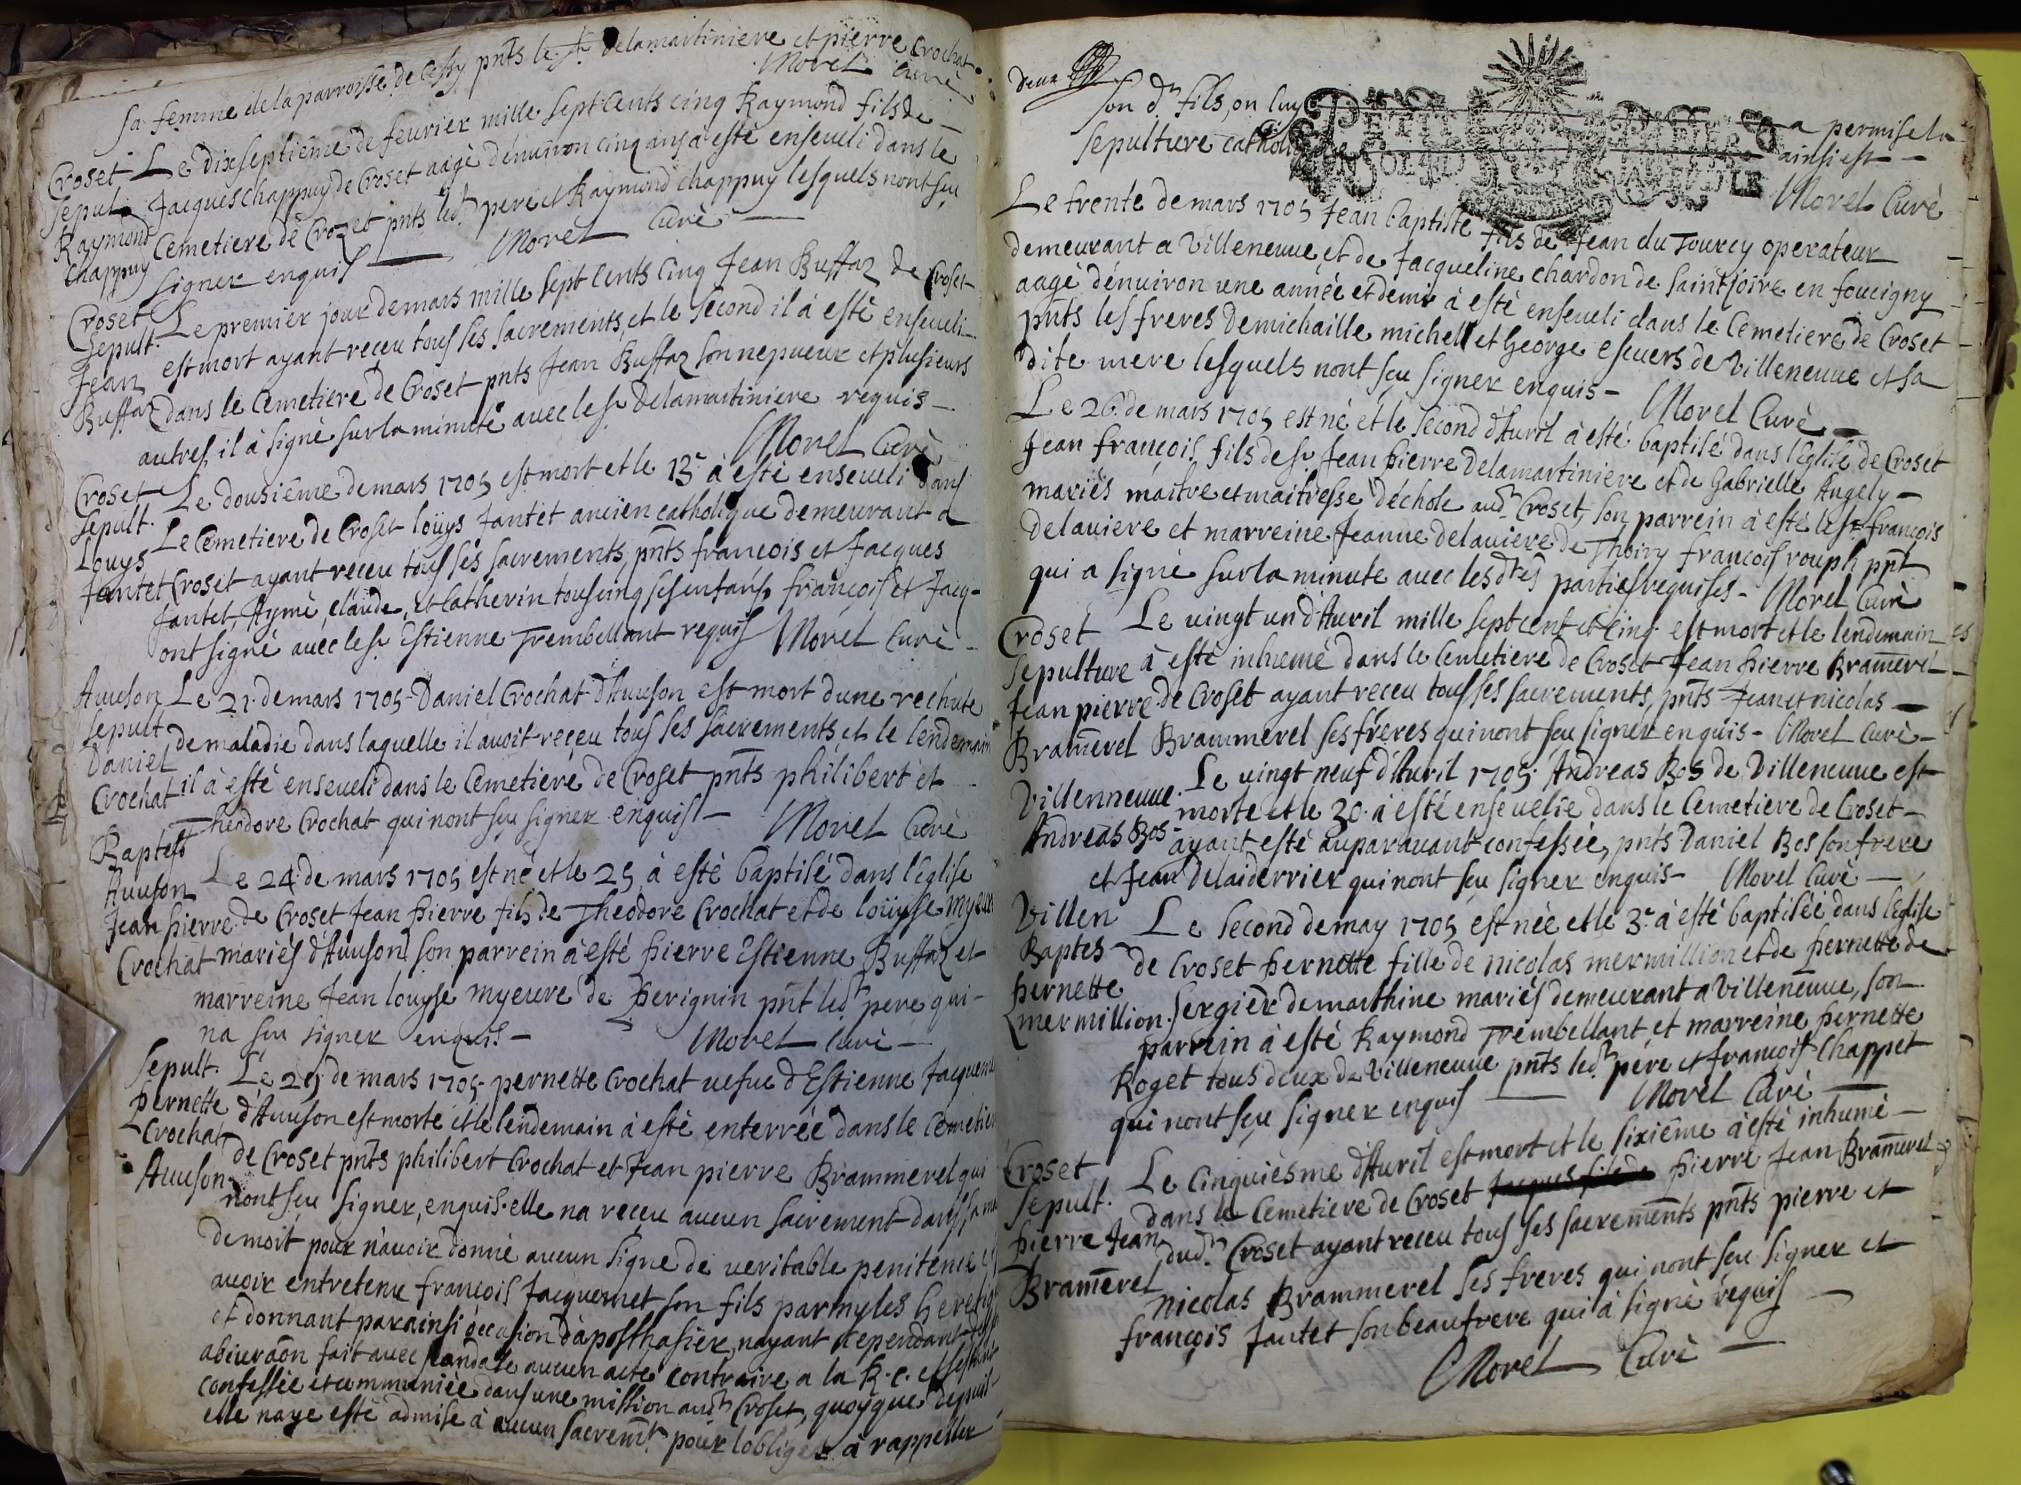 sa femme de la parroisse de Cessy pnts le sr delamartiniere et pierre Crochat
Morel Curè
Croset Le dixseptième de feurier mille sept cents cinq Raymond fils de
sepul. Jacques Chappuy de Croset aagè d'enuiron cinq ans à estè enseueli dans le
Raymond Cemetiere de Crozet pnts ledt pere et Raymond chappuy lesquels nont seu
Chappuy signer enquis Morel Curè
Croset Le premier jour de mars mille sept cents cinq Jean Buffaz de Croset
Sepult. est mort ayant receu tous ses sacrements, et le second il à estè enseueli
Jean dans le Cemetiere de Croset pnts Jean Buffaz son nepueux et plusieurs
Buffaz autres il à signè sur la minute avec le sr Delamartiniere requis
Morel Curè
Croset Le dousième de mars 1705 est mort et le 13e à estè enseueli dans
sepult. Le Cemetiere de Croset loüys Jantet ancien catholique demeurant a
Louys Croset ayant receu tous ses sacrements, pnts francois et Jacques
Jantet Jantet, Aymè, claude, et Catherin tous cinq ses enfans, françois et Jacq-
ont signè avec le sr Estienne Trembellant requis Morel Curè
Auuson Le 21. de mars 1705 Daniel Crochat d'Auuson est mort dune rechute
sepult de maladie dans laquelle il auoit receu tous ses sacrements, et le lendemain
Daniel il à estè enseueli dans le Cemetiere de Croset pnts philibert et
Crochat Theodore Crochat qui nont seu signer enquis Morel Curè
Baptes
Auuson Le 24 de mars 1705 est nè et le 25 à estè baptisè dans l'eglise
Jean pierre de Croset Jean pierre fils de Theodore Crochat et de loüyse
Crochat mariès d'Auuson son parrein à estè pierre Estienne Buffaz et
marreine Jean louyse myeure de Perignin pnt ledt pere qui
na seu signer enquis Morel Curè
Sepult. Le 25 de mars 1705 pernette Crochat uefue d'Estienne
pernette d'Auuson est morte et le lendemain à estè enterrèe dans le
Crochat de Croset pnts philibert Crochat et Jean pierre Brammerel qui
Auuson nont seu signer, enquis. elle na receu aucun sacrement dans sa
de mort pour n'auoir donnè aucun signe de veritable penitence
auoir entretenu françois Jacquemet son fils parmy les
et donnant par ainsi occasion d'aposthasier, nayant cependant
abiuraon fait avec scandale aucun acte contraire a la R.C. et
confessèe et communièe dans une mission audt Croset, quoyque depuis
elle naye estè admise à aucun sacremt. pour lobliger à rappeller
Deux
son dt fils, on luy a permise la
sepulture catholique ainsi est
Morel Curè
Le trente de mars 1705 Jean baptiste fils de Jean du Tourcy operateur
demeurant a Villeneuue, et de Jacqueline chardon de saint joire en foucigny
aagè d'enuiron une annèe et demie à estè enseueli dans le Cemetiere de Croset
pnts les freres Demichaille michell et George escuers de Villeneuue et sa
dite mere lesquels nont seu signer enquis Morel Curè
Le 26. de mars 1705 est nè et le second d'Auril à estè baptisè dans l'Eglise de Croset
Jean françois fils de sr Jean pierre Delamartiniere et de Gabrielle Angely
mariès maitre et maitresse d'echole audt Croset, son parrein à estè le sr françois
delauiere et marreine Jeanne delauiere de Thoiry francois rouph pnt
qui a signè sur la minute avec les dtes parties requises Morel Curè
Croset Le vingt un d'Auril mille sept cent et cinq est mort et le lendemain
Sepulture à estè inhumè dans le Cemetiere de Croset Jean pierre Bramerel
Jean pierre de Croset ayant receu tous ses sacrements, pnts Jean et nicolas
Bramerel Brammerel ses frères qui nont seu signer enquis Morel Curè
Villenneuue. Le vingt neuf d'Auril 1705. Andreas Bos de Villeneuue est
Andreas Bos morte et le 30. à estè enseuelie dans le Cemetiere de Croset
ayant estè auparauant confessèe, pnts Daniel Bos son frere
et Jean Delaiderrier qui nont seu signer enquis Morel Curè
Villen Le second de may 1705 est nèe et le 3e à estè baptisèe dans l'Eglise
Baptes de Croset pernette fille de nicolas mermillion et de pernette de
pernette sergier de marthine mariès demeurant a Villeneuue, son
mermillion. parrein à estè Raymond Trembellant et marreine pernette
Roget tous deux de Villeneuue pnts ledt père et francois Chappet
qui nont seu signer enquis Morel Curè
Croset Le Cinquiesme d'Auril est mort et le sixième à estè inhumè
Sepult. dans le Cemetiere de Croset pierre Jean Bramerel
pierre Jean dudt. Croset ayant receu tous ses sacrements pnts pierre et
Bramerel nicolas Brammerel ses freres qui nont seu signer et
françois Jantet son beaufrere qui à signè requis
Morel Curè